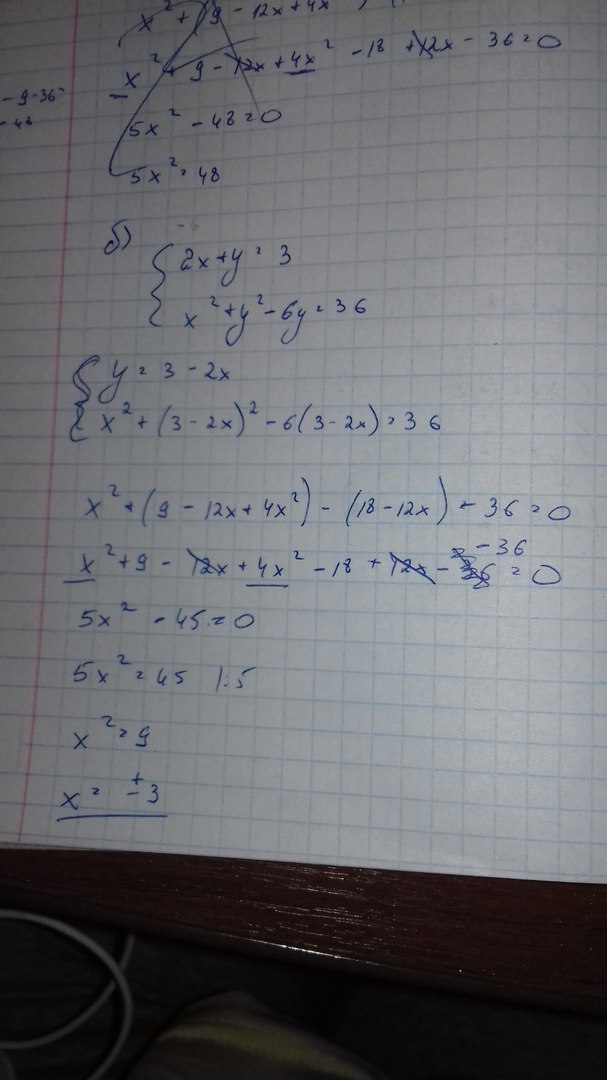 x² + (9 - 12x + 4x
x² + 9 - 12x + 4x² - 18 + 12x - 36 = 0
- 9-36-
- 48
5x² - 48 = 0
5x² = 48
- 6
б) { 2x + y = 3
x² + y² - 6y = 36
{ y = 3 - 2x
x² + (3 - 2x)² - 6(3 - 2x) = 36
x² + (9 - 12x + 4x²) - (18 - 12x) - 36 = 0
x² + 9 - 12x + 4x² - 18 + 12x - 36 = 0
5x² - 45 = 0
5x² = 45 |:5
x² = 9
x = ±3